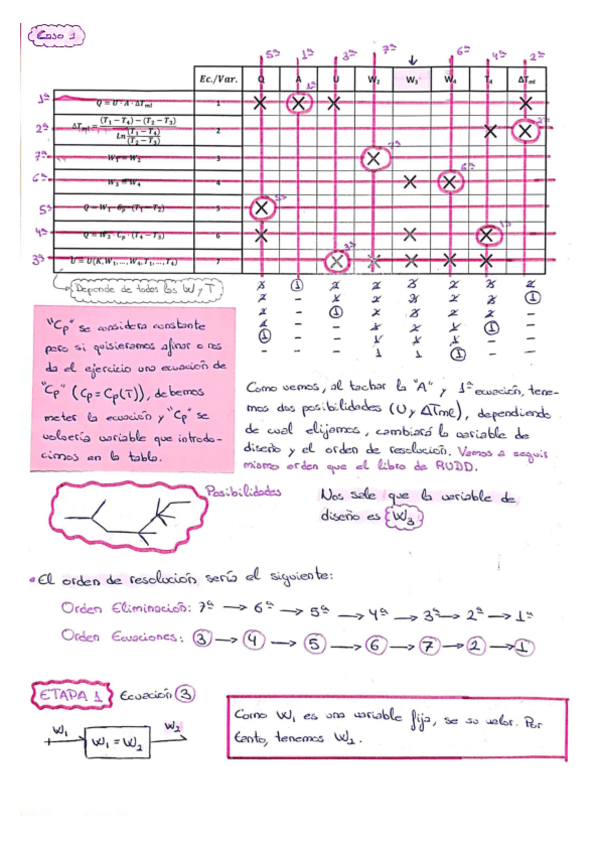 Caso 1
5ª 1ª 3ª 7ª ↓ 6ª 4ª 2ª
Ec./Var. Q A U W₂ W₃ W₄ T₄ ΔTml
1ª Q = U · A · ΔTml 1 X X X X
2ª ΔTml = ((T₁ − T₄) − (T₂ − T₃)) / Ln((T₁ − T₄)/(T₂ − T₃)) 2 X X
7ª W₁ = W₂ 3 X
6ª W₃ = W₄ 4 X X
5ª Q = W₁ · Cp · (T₁ − T₂) 5 X
4ª Q = W₃ · Cp · (T₄ − T₃) 6 X X X
3ª U = U(K,W₁,...,W₄,T₁,...,T₄) 7 X X X X X
Depende de todos los W y T
"Cp" se considera constante
pero si quisieramos afinar o nos
da el ejercicio una ecuación de
"Cp" (Cp = Cp(T)), debemos
meter la ecuación y "Cp" se
volvería variable que introdu-
cimos en la tabla.
Como vemos, al tachar la "A" y 1ª ecuación, tene-
mos dos posibilidades (U y ΔTml), dependiendo
de cual elijamos, cambiará la variable de
diseño y el orden de resolución. Vamos a seguir
mismo orden que el libro de RUDD.
Posibilidades
Nos sale que la variable de
diseño es W₃
• El orden de resolución sería el siguiente:
Orden Eliminación: 7ª → 6ª → 5ª → 4ª → 3ª → 2ª → 1ª
Orden Ecuaciones: 3 → 4 → 5 → 6 → 7 → 2 → 1
ETAPA 1 Ecuación 3
W₁ W₁ = W₂ W₂
Como W₁ es una variable fija, se su valor. Por
tanto, tenemos W₂.